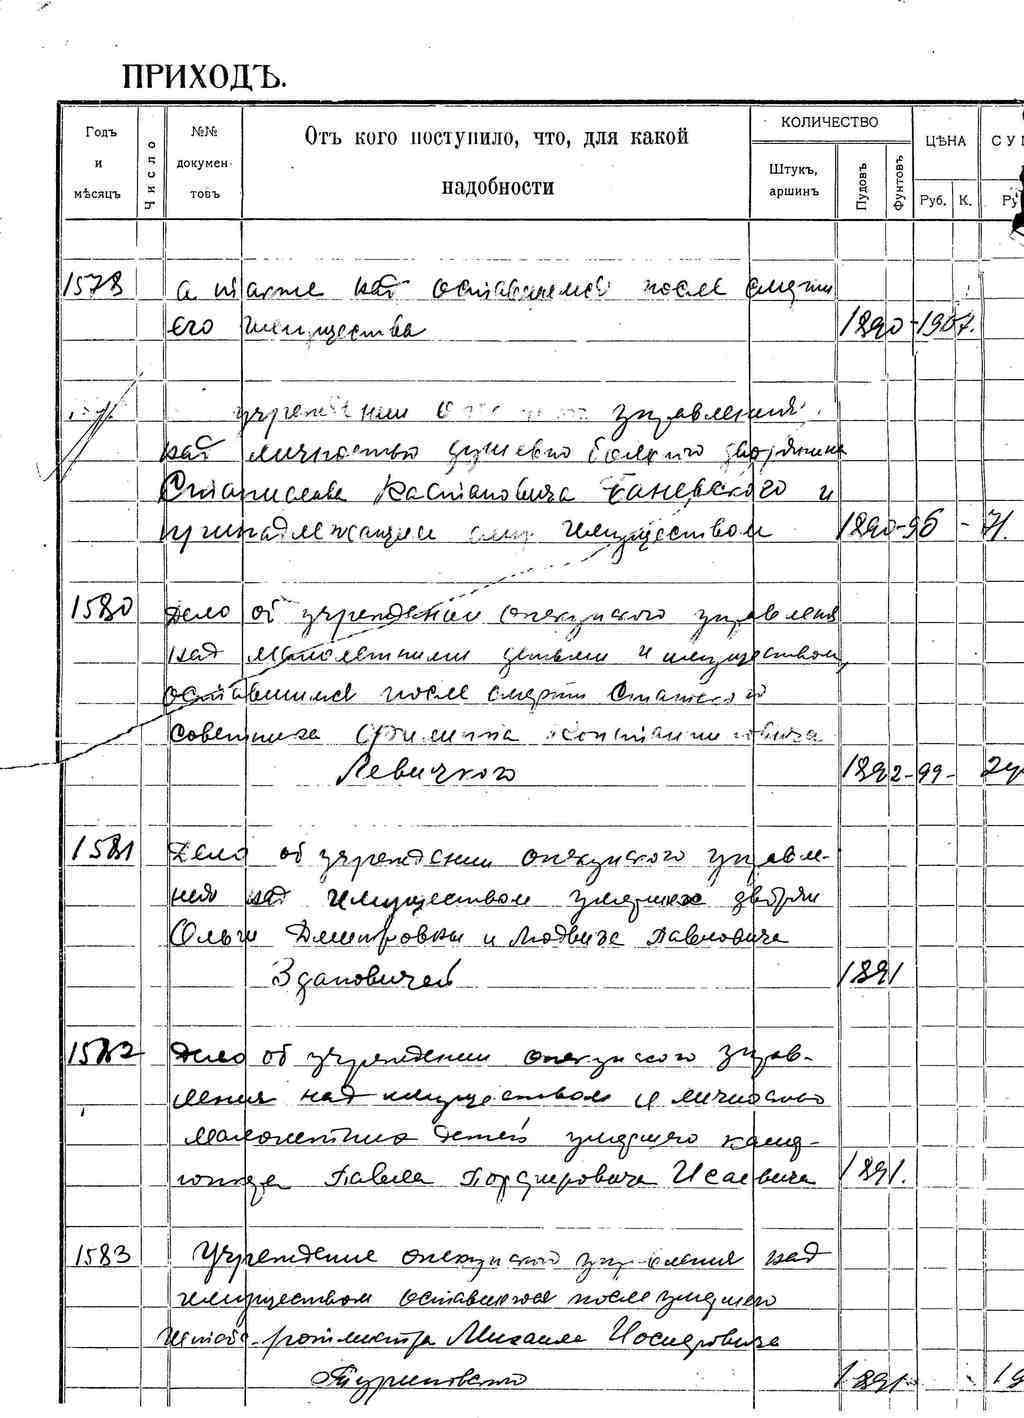 ПРИХОДЪ.
Годъ и мѣсяцъ
Число
№№ документовъ
Отъ кого поступило, что, для какой надобности
КОЛИЧЕСТВО
Штукъ, аршинъ
Пудовъ
Фунтовъ
ЦѢНА
Руб.
К.
1578 а также над оставшемся после смерти
его имуществе 1890-1907.
учреждении управления
над личностью душевно больного дворянина
Станислава Каневского и
принадлежащим ему имуществом 1890-96 - 71.
1580 Дело об учреждении опекунского управления
над малолетними детьми и имуществом,
оставшимся после смерти Статского
советника Филиппа Константиновича
Левицкого 1892-99-
1581 Дело об учреждении опекунского управле-
ния над имуществом умерших дворян
Ольги Дмитровны и Людвига Павловича
Здановичей 1891
1582 Дело об учреждении опекунского управ-
ления над имуществом и личностью
малолетних детей умершего
Павла Порфировича Исаевича 1891.
1583 Учреждение опекунского управления над
имуществом оставшимся после умершего
Штабс-ротмистра Михаила Иосифовича
1891